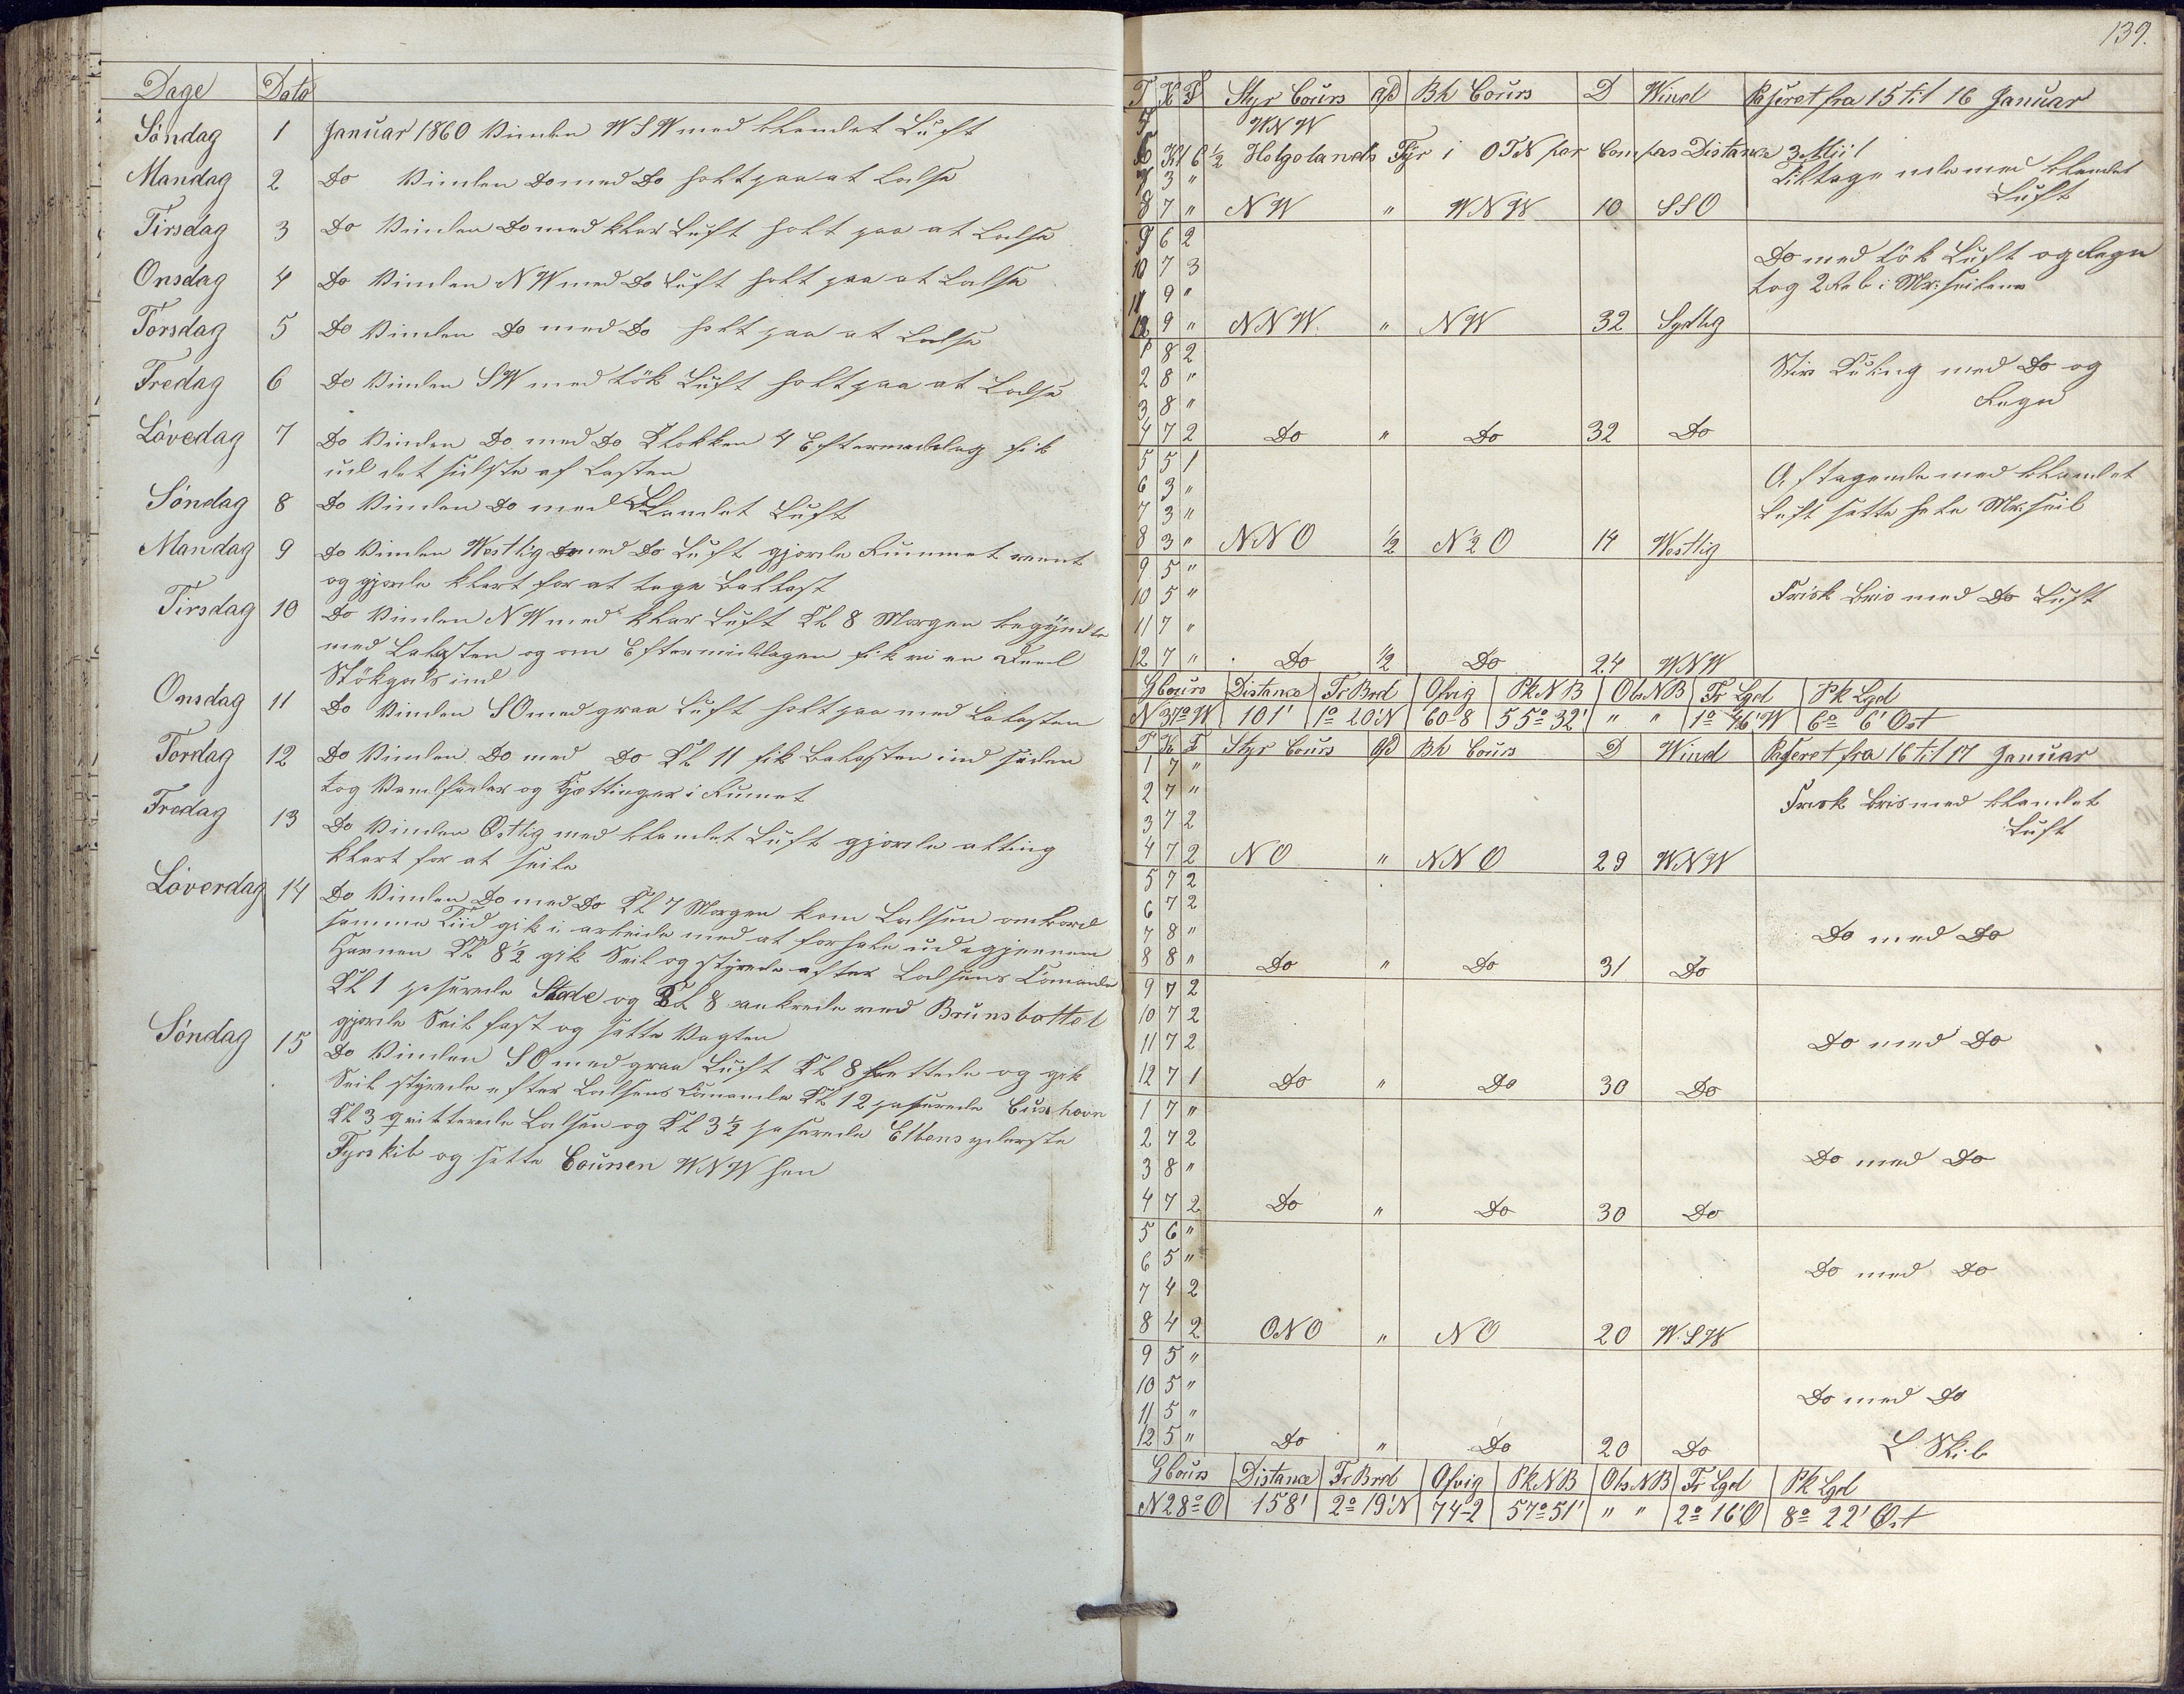 139.
Dage Dato
Søndag 1 Januar 1860 Vinden WSW med blandet Luft
Mandag 2 Do Vinden Do med Do holt paa at Lodse
Tirsdag 3 Do Vinden Do med klar Luft holt paa at Lodse
Onsdag 4 Do Vinden NW med Do Luft holt paa at Lodse
Torsdag 5 Do Vinden Do med Do holt paa at Lodse
Fredag 6 Do Vinden SW med tök Luft holt paa at Lodse
Lövedag 7 Do Vinden Do med Do Klokken 4 Eftermiddag fik
ud det sidste af Lasten
Søndag 8 Do Vinden Do med Blandet Luft
Mandag 9 Do Vinden Westlig med Do Luft gjorde Rummet reent
og gjorde klart for at tage Ballast
Tirsdag 10 Do Vinden NW med klar Luft Kl 8 Morgen begÿndte
med Balasten og om Eftermiddagen fik vi en Deel
Stökgods ind
Onsdag 11 Do Vinden SO med graa Luft holt paa med Balasten
Tordag 12 Do Vinden Do med Do Kl 11 fik Balasten ind siden
tog Vandfade og Kjættinger i Rumet
Fredag 13 Do Vinden Ostlig med blandet Luft gjorde alting
klart for at seile
Löverdag 14 Do Vinden Do med Do Kl 7 Morgen kom Lodsen ombord
samme Tiid gik i arbeide med at forhale ud igjennem
Havnen Kl 8½ gik Seil og styrede efter Lodsens Comande
Kl 1 paserede Stade og Kl 8 ankrede ved Brunsbottel
gjorde Seil fast og satte Vagten
Søndag 15 Do Vinden SO med graa Luft Kl 8 lettede og gik
Seil styrede efter Lodsens Comande Kl 12 paserede Cuxhavn
Kl 3 qvitterede Lodsen og Kl 3½ paserede Elbens yderste
Fyrskib og satte Coursen WNW hen
T K F Styr Cours afd Bh Cours D Wind Paseret fra 15 til 16 Januar
5 WNW
6 Kl 6½ Helgolands Fÿr i OTN per Compas Distance 3 Miil
7 3 " Tiltagende med blandet
8 7 " NW " WNW 10 SSO Luft
9 6 2
10 7 3 Do med tök Luft og Regn
11 9 " tog 2 Reb i Mr: Seilene
12 9 " NNW. " NW 32 Sydlig
1 8 2
2 8 " Stiv Kuling med Do og
3 8 " Regn
4 7 2 Do " Do 32 Do
5 5 1
6 3 " Aftagende med blandet
7 3 " Luft satte hele Mr: seil
8 3 " NNO ½ N½O 14 Westlig
9 5 "
10 5 " Frisk Bris med Do Luft
11 7 "
12 7 " Do ½ Do 24 WNW
GCours Distance Fr Brd Afvig PkNB ObsNB Fr Lgd Pk Lgd
N 37° W 101' 1° 20'N 60-8 55° 32' " " 1° 46'W 6° 6' Ost
T K F Styr Cours afd Bh Cours D Wind Paseret fra 16 til 17 Januar
1 7 "
2 7 " Frisk bris med blandet
3 7 2 Luft
4 7 2 NO " NNO 29 WNW
5 7 2
6 7 2
7 8 " Do med Do
8 8 " Do " Do 31 Do
9 7 2
10 7 2
11 7 2 Do med Do
12 7 1 Do " Do 30 Do
1 7 "
2 7 2
3 8 " Do med Do
4 7 2 Do " Do 30 Do
5 6 "
6 5 " Do med Do
7 4 2
8 4 2 ONO " NO 20 W.SW
9 5 "
10 5 " Do med Do
11 5 "
12 5 " Do " Do 20 Do L Skib
GCours Distance Fr Brd Afvig PkNB ObsNB Fr Lgd Pk Lgd
N 28° O 158' 2° 19'N 74-2 57° 51' " " 2° 16'O 8° 22' Ost